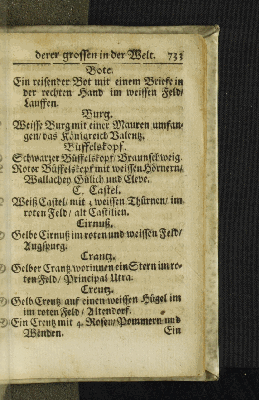 derer grossen in der Welt. 733
Bote.
Ein reisender Bot mit einem Briefe in
der rechten Hand im weissen Feld/
Lauffen.
Burg.
Weisse Burg mit einer Mauren umfan-
gen/ das Königreich Valentz.
Büffelskopf.
Schwarzer Büffelskopf/ Braunschweig.
Roter Büffelskopf mit weissen Hörnern/
Wallachey/ Gülich und Cleve.
C. Castel.
Weiß Castel/ mit 3 weissen Thürnen/ im
roten Feld/ alt Castilien.
Cirnuß.
Gelbe Cirnuß im roten und weissen Feld/
Augspurg.
Crantz.
Gelber Crantz worinnen ein Stern im ro-
ten Feld/ Principal Utra.
Creutz.
Gelb Creutz auf einen weissen Hügel im
im roten Feld/ Altendorf.
Ein Creutz mit 4. Rosen/ Pommern und
Wenden.
Ein